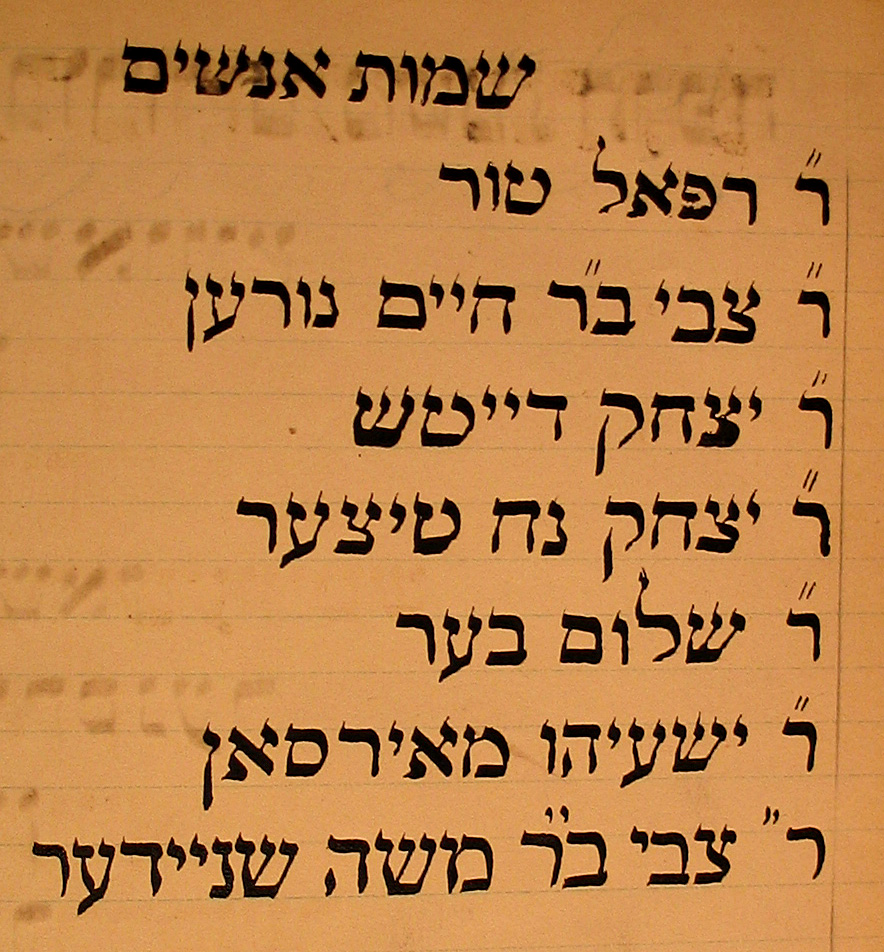 שמות אנשים
ר״ רפאל טור
ר״ צבי ב״ר חיים נורען
ר״ יצחק דייטש
ר״ יצחק נח טיצער
ר״ שלום בער
ר״ ישעיהו מאירסאן
ר״ צבי ב״ר משה שניידער